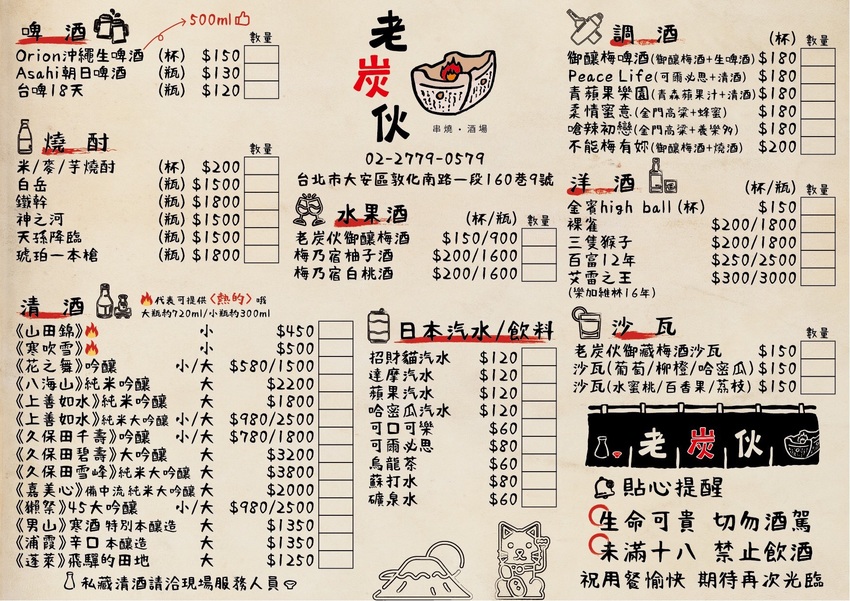 啤 酒
500ml
數量
Orion沖繩生啤酒 (杯) $150
Asahi朝日啤酒 (瓶) $130
台啤18天 (瓶) $120
燒 酎
數量
米/麥/芋燒酎 (杯) $200
白岳 (瓶) $1500
鐵幹 (瓶) $1800
神之河 (瓶) $1500
天孫降臨 (瓶) $1500
琥珀一本槍 (瓶) $1800
清 酒
🔥代表可提供〈熱的〉哦
大瓶約720ml/小瓶約300ml
《山田錦》🔥 小 $450
《寒吹雪》🔥 小 $500
《花之舞》吟釀 小/大 $580/1500
《八海山》純米吟釀 大 $2200
《上善如水》純米吟釀 大 $1800
《上善如水》純米大吟釀 小/大 $980/2500
《久保田千壽》吟釀 小/大 $780/1800
《久保田碧壽》大吟釀 大 $3200
《久保田雪峰》純米大吟釀 大 $3800
《嘉美心》備中流 純米大吟釀 大 $2000
《獺祭》45大吟釀 小/大 $980/2500
《男山》寒酒 特別本釀造 大 $1350
《浦霞》辛口 本釀造 大 $1350
《蓬萊》飛驒的田地 大 $1250
私藏清酒請洽現場服務人員
老
炭
伙
串燒・酒場
02-2779-0579
台北市大安區敦化南路一段160巷9號
水果酒 (杯/瓶) 數量
老炭伙御釀梅酒 $150/900
梅乃宿柚子酒 $200/1600
梅乃宿白桃酒 $200/1600
日本汽水/飲料
招財貓汽水 $120
達摩汽水 $120
蘋果汽水 $120
哈密瓜汽水 $120
可口可樂 $60
可爾必思 $80
烏龍茶 $60
蘇打水 $80
礦泉水 $60
調 酒 (杯) 數量
御釀梅啤酒(御釀梅酒+生啤酒) $180
Peace Life(可爾必思+清酒) $180
青蘋果樂園(青森蘋果汁+清酒) $180
柔情蜜意(金門高粱+蜂蜜) $180
嗆辣初戀(金門高粱+養樂多) $180
不能梅有妳(御釀梅酒+燒酒) $200
洋 酒 (杯/瓶) 數量
金賓high ball (杯) $150
裸雀 $200/1800
三隻猴子 $200/1800
百富12年 $250/2500
艾雷之王 $300/3000
(樂加維林16年)
沙 瓦 數量
老炭伙御藏梅酒沙瓦 $150
沙瓦(葡萄/柳橙/哈密瓜) $150
沙瓦(水蜜桃/百香果/荔枝) $150
老 炭 伙
貼心提醒
生命可貴 切勿酒駕
未滿十八 禁止飲酒
祝用餐愉快 期待再次光臨